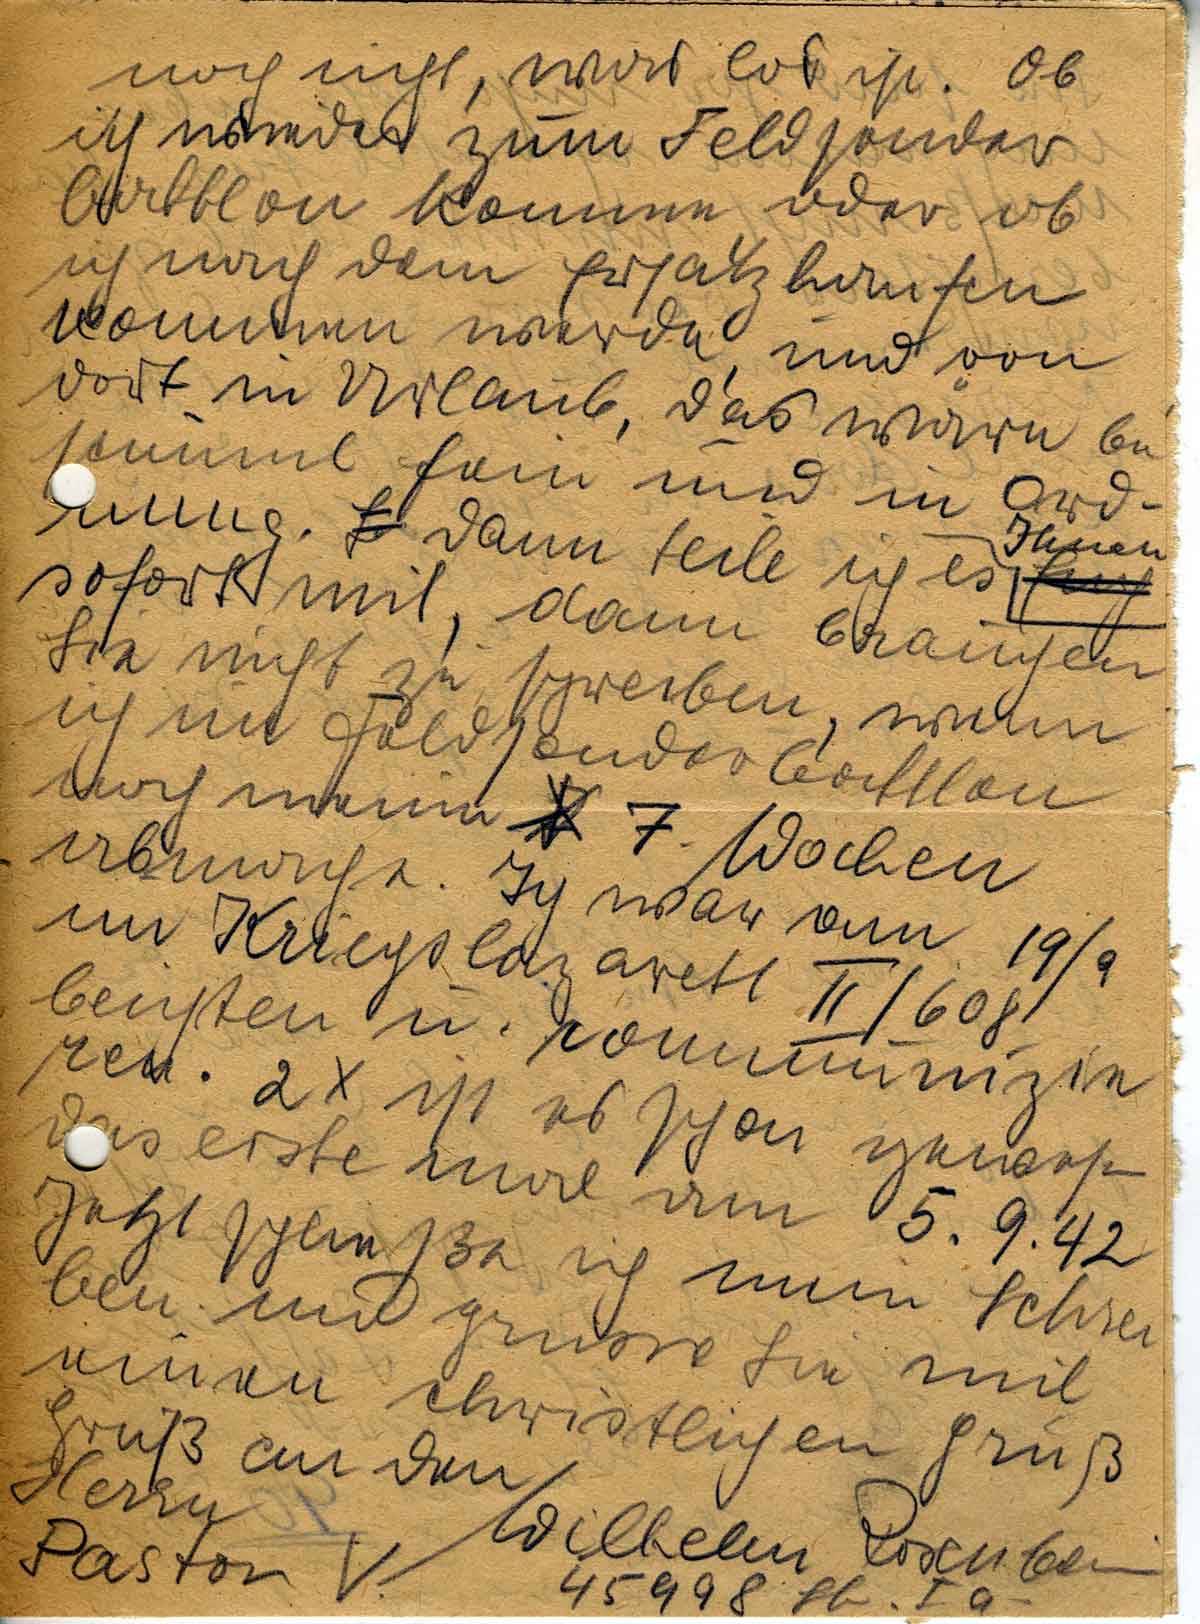 noch nicht, was los ist. Ob
ich wieder zum Feldsonder
Batallon komme oder ob
ich nach dem Ersatzhaufen
kommen werde, und von
dort in Urlaub, das wäre be
stimmt fein und in Ord-
nung. Dann teile ich es Ihnen
sofort mit, dann brauchen
Sie nicht zu schreiben, wenn
ich im Feldsonderbatllon
noch meine 7. Wochen
abmache. Ich war am 19/9
im Kriegslazarett II/608
beichten u. kommunizie
ren. 2x ist es schon gewesen
das erste mal am 5.9.42
Jetzt schließe ich mein Schrei
ben und grüsse Sie mit
einen christlichen Gruß
Gruß an den
Herrn
Pastor V. Wilhelm
45998 Ia